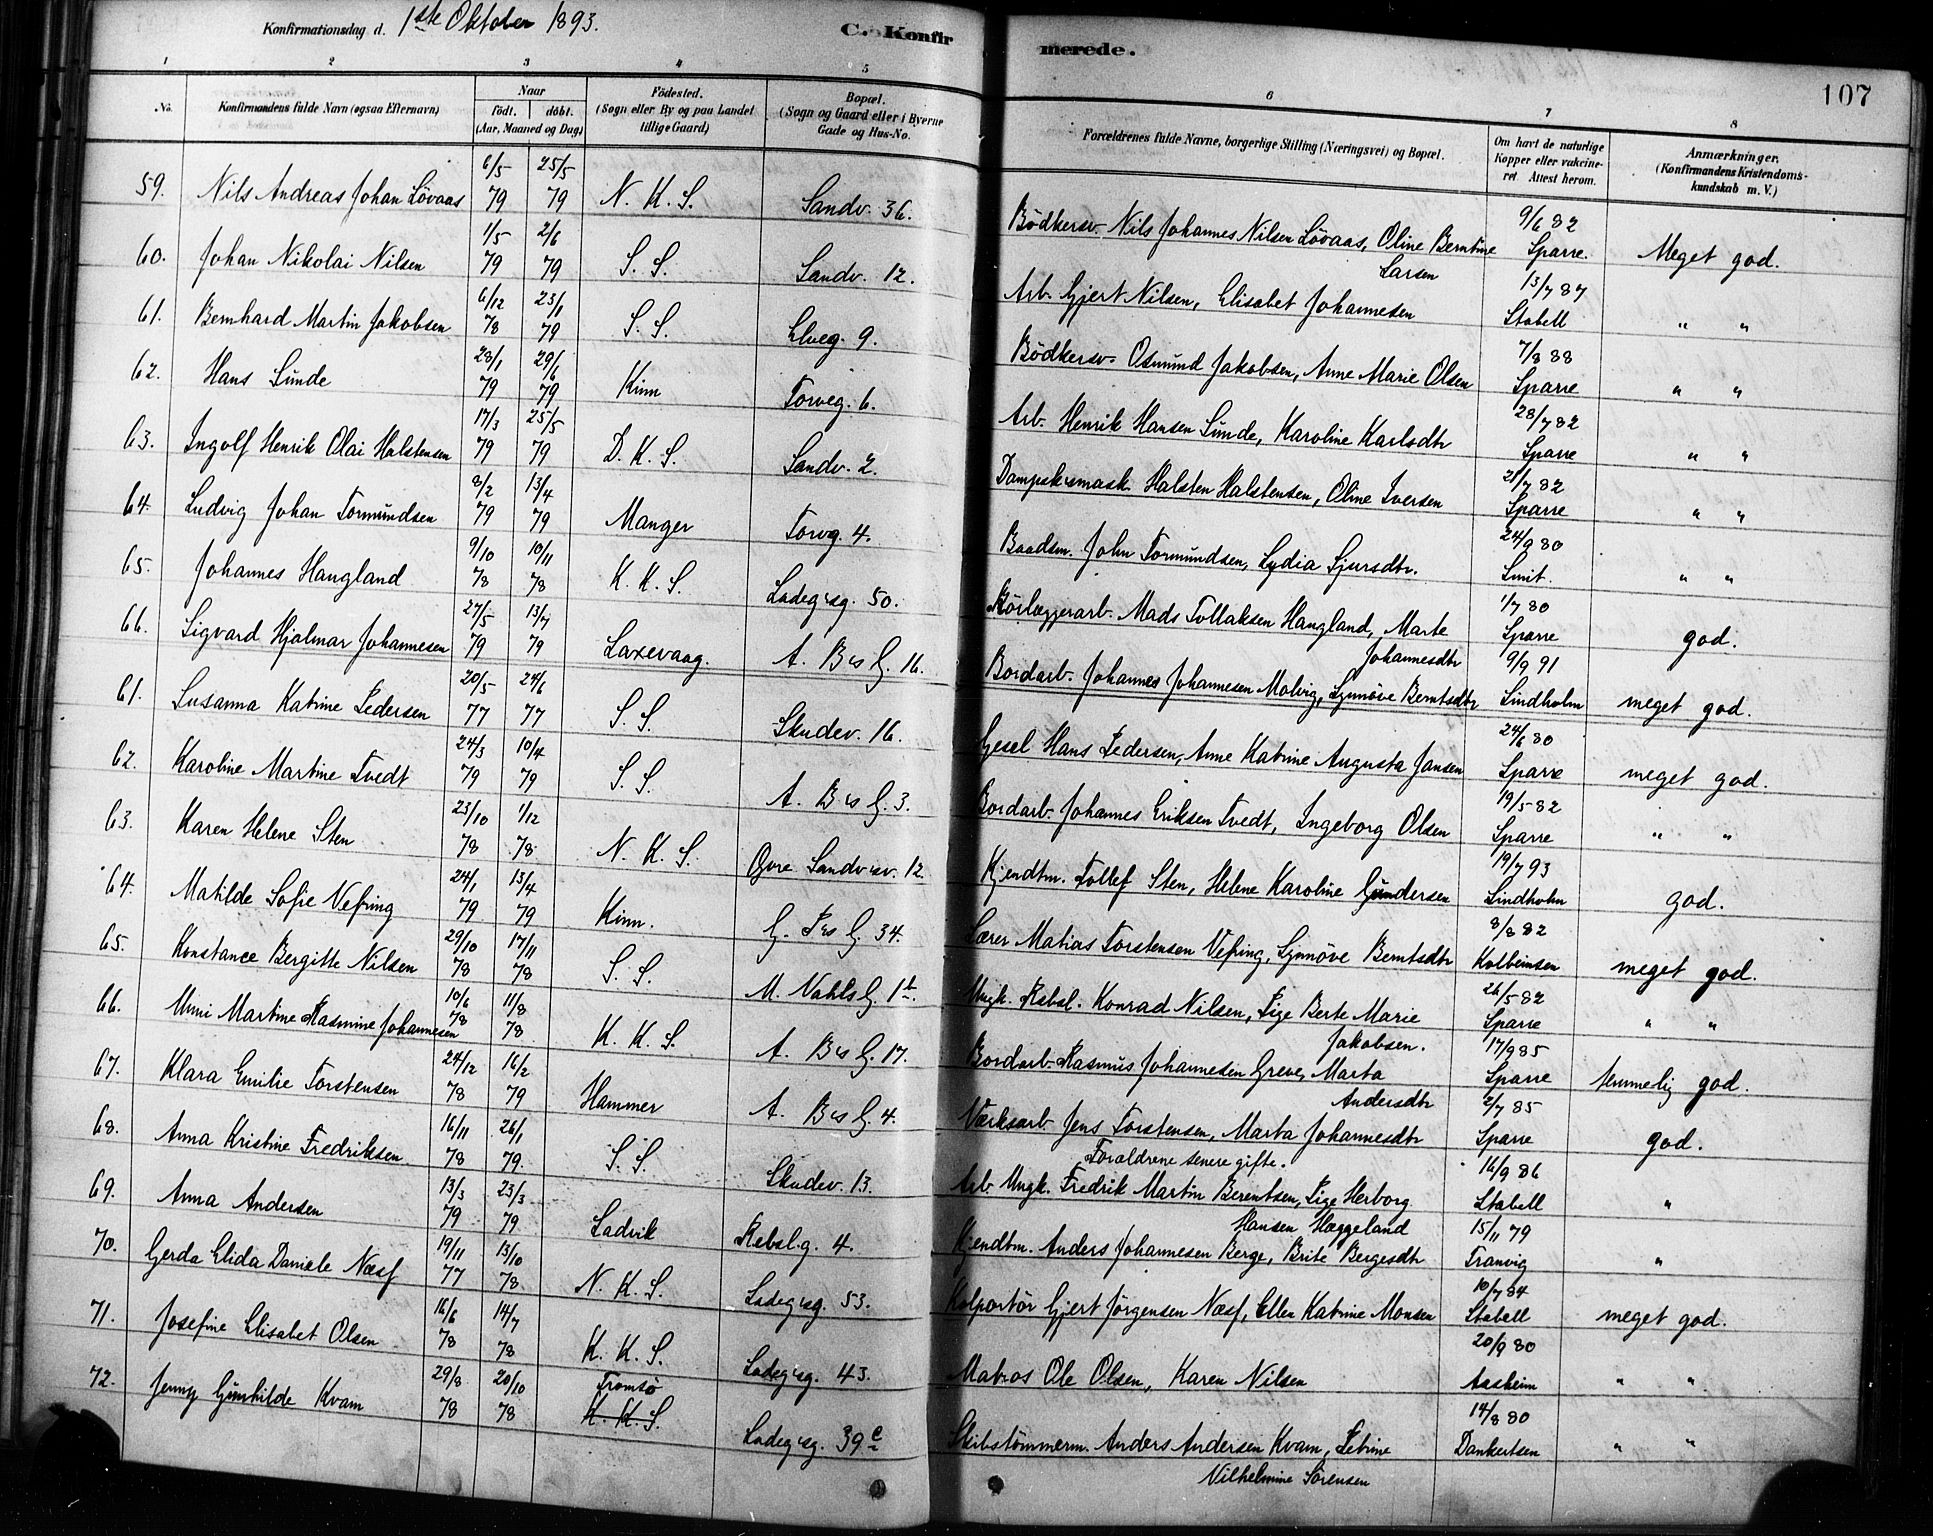 Konfirmationsdag d. 1ste Oktober 1893.
C. Konfirmerede.
107
1 2 3 4 5 6 7 8
No. Konfirmandens fulde Navn (ogsaa Efternavn) Naar födt. döbt. (Aar, Maaned og Dag) Födested. (Sogn eller By og paa Landet tillige Gaard) Bopæl. (Sogn og Gaard eller i Byerne Gade og Hus-No. Forældrenes fulde Navne, borgerlige Stilling (Næringsvei) og Bopæl. Om havt de naturlige Kopper eller vakcineret. Attest herom. Anmærkninger. (Konfirmandens Kristendomskundskab m. V.)
59. Nils Andreas Johan Lövaas 6/5 79 25/5 79 N. K. S. Sandv. 36. Bödkersv. Nils Johannes Nilsen Lövaas, Oline Berntine Larsen 9/6 82 Sparre. Meget god.
60. Johan Nikolai Nilsen 1/5 79 2/6 79 S. S. Sandv. 12. Arb. Gjert Nilsen, Elisabet Johannesen 13/7 87 Stabell " "
61. Bernhard Martin Jakobsen 6/12 78 23/1 79 S. S. Elveg. 9. Bödkersv. Osmund Jakobsen, Anne Marie Olsen 7/8 88 Sparre " "
62. Hans Sunde 28/1 79 29/6 79 Kinn Torveg. 6. Arb. Henrik Hansen Sunde, Karoline Karlsdtr 28/7 82 Sparre " "
63. Ingolf Henrik Olai Halstensen 17/3 79 25/5 79 D. K. S. Sandv. 2. Dampsksmask. Halsten Halstensen, Oline Iversen 21/7 82 Sparre " "
64. Ludvig Johan Tormundsen 8/2 79 13/4 79 Manger Torvg. 4. Baadsm. John Tormundsen, Lydia Sjursdtr. 24/9 80 Smit. " "
65. Johannes Haugland 9/10 78 10/11 78 K. K. S. Ladegsg. 50. Rörlæggerarb. Mads Tollaksen Haugland, Marte Johannesdtr 1/7 80 Sparre god.
66. Sigvard Hjalmar Johannesen 27/5 79 13/7 79 Laxevaag. A. Bs G. 16. Bordarb. Johannes Johannesen Molvig, Synnöve Berntsdtr 9/9 91 Lindholm meget god.
61. Susanna Katrine Pedersen 20/5 77 24/6 77 S. S. Skudev. 16. Gesel Hans Pedersen, Anne Katrine Augusta Jansen 24/6 80 Sparre meget god.
62. Karoline Martine Tvedt 24/3 79 10/4 79 S. S. A. Bs G. 3. Bordarb. Johannes Eriksen Tvedt, Ingeborg Olsen 19/5 82 Sparre " "
63. Karen Helene Sten 23/10 78 1/12 78 N. K. S. Ovre Sandvsv. 12. Kjendtm. Tollef Sten, Helene Karoline Gundersen 19/7 93 Lindholm god.
64. Matilde Sofie Vefring 24/1 79 13/4 79 Kinn. G. Ps G. 34. Lærer Matias Torstensen Vefring, Synnöve Berntsdtr 8/8 82 Kolbeinsen meget god.
65. Konstance Bergitte Nilsen 29/10 78 17/11 78 S. S. M. Vahls G. 1b. Ungk. Rebsl. Konrad Nilsen, Pige Berte Marie Jakobsen. 26/5 82 Sparre " "
66. Mimi Martine Rasmine Johannesen 10/6 78 11/8 78 K. K. S. A. Bs G. 17. Bordarb. Rasmus Johannesen Greve, Marta Andersdtr 17/9 85 Sparre temmelig god.
67. Klara Emilie Torstensen 24/12 78 16/2 79 Hammer A. Bs G. 4. Værksarb Jens Torstensen, Marta Johannesdtr 2/7 85 Sparre god.
68. Anna Kristine Fredriksen 16/11 78 26/1 79. S. S. Skudev. 13. Forældrene senere gifte. Arb. Ungk. Fredrik Martin Berentsen, Pige Herborg Hansen Hæggeland 16/9 86 Stabell "
69. Anna Andersen 13/3 79 23/3 79 Ladvik Rebsl.g. 4. Kjendtm. Anders Johannesen Berge, Brite Bergesdtr 15/11 79 Tranvig "
70. Gerda Elida Daniele Næsf 19/11 77 13/10 78 N. K. S. Ladegsg. 53. Kolportör Gjert Jörgensen Næsf, Ellen Katrine Monsen 10/7 84 Stabell meget god.
71. Josefine Elisabet Olsen 16/6 78 14/7 78 K. K. S. Ladegsg. 43. Matros Ole Olsen, Karen Nilsen 20/9 80 Aasheim " "
72. Jenny Gunhilde Kvam 29/8 78 20/10 78 Tromsö K. K. S. Ladegsg. 39c Skibstömmerm. Anders Andersen Kvam, Petrine Vilhelmine Sörensen 14/8 80 Dankertsen " "